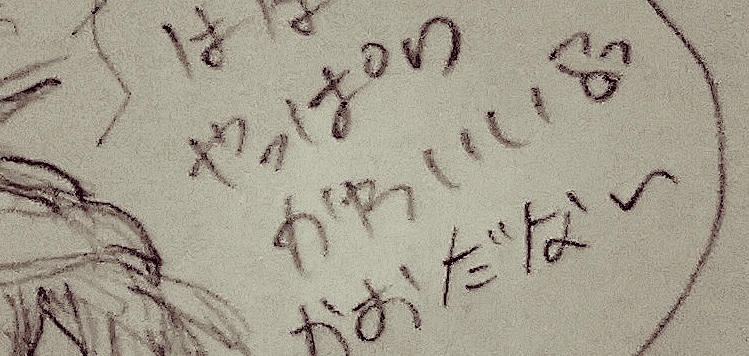 はは
やっぱり
かわいい
かおだな〜